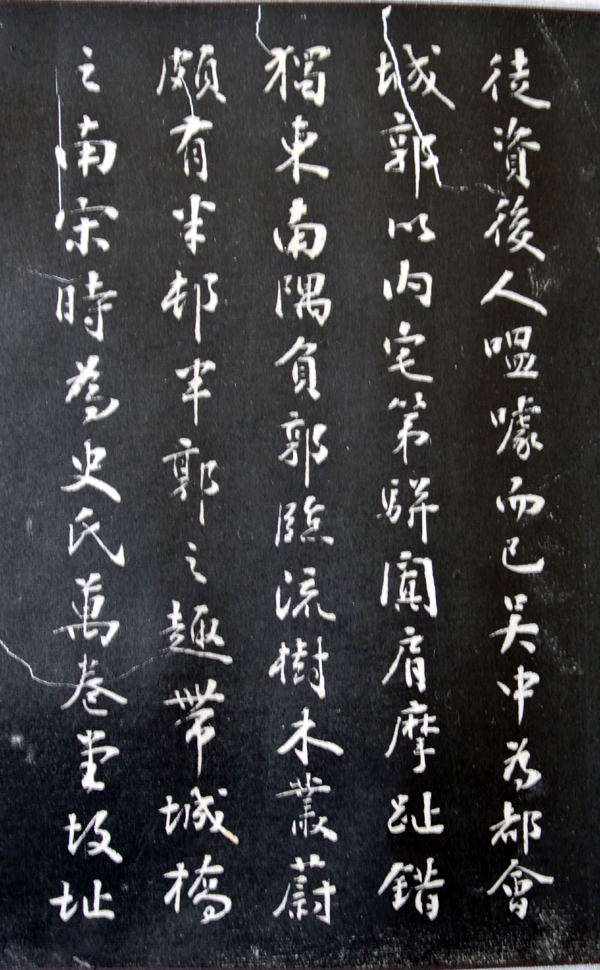 徒資後人嗢噱而已吳中為都會
城郭以内宅第駢闐肩摩趾錯
獨東南隅負郭臨流樹木叢蔚
頗有半邨半郭之趣帶城橋
之南宋時為史氏萬卷堂故址